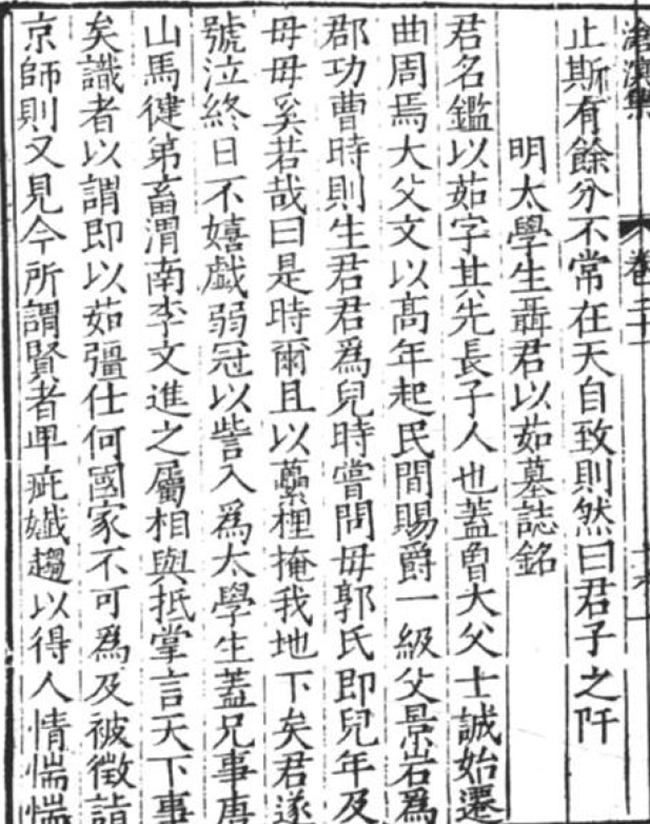 滄溟集 卷二十一
止斯有餘分不常在天自致則然曰君子之阡
明太學生聶君以茹墓誌銘
君名鑑以茹字其先長子人也蓋曾大父士誠始遷
曲周焉大父文以高年起民間賜爵一級父景岩為
郡功曹時則生君君為兒時嘗問母郭氏即兒年及
母母奚若哉曰是時爾且以虆梩掩我地下矣君遂
號泣終日不嬉戲弱冠以訾入為太學生蓋兄事唐
山馬徤第畜渭南李文進之屬相與抵掌言天下事
矣識者以謂即以茹彊仕何國家不可為及被徵詣
京師則又見今所謂賢者卑疵孅趨以得人情惴惴